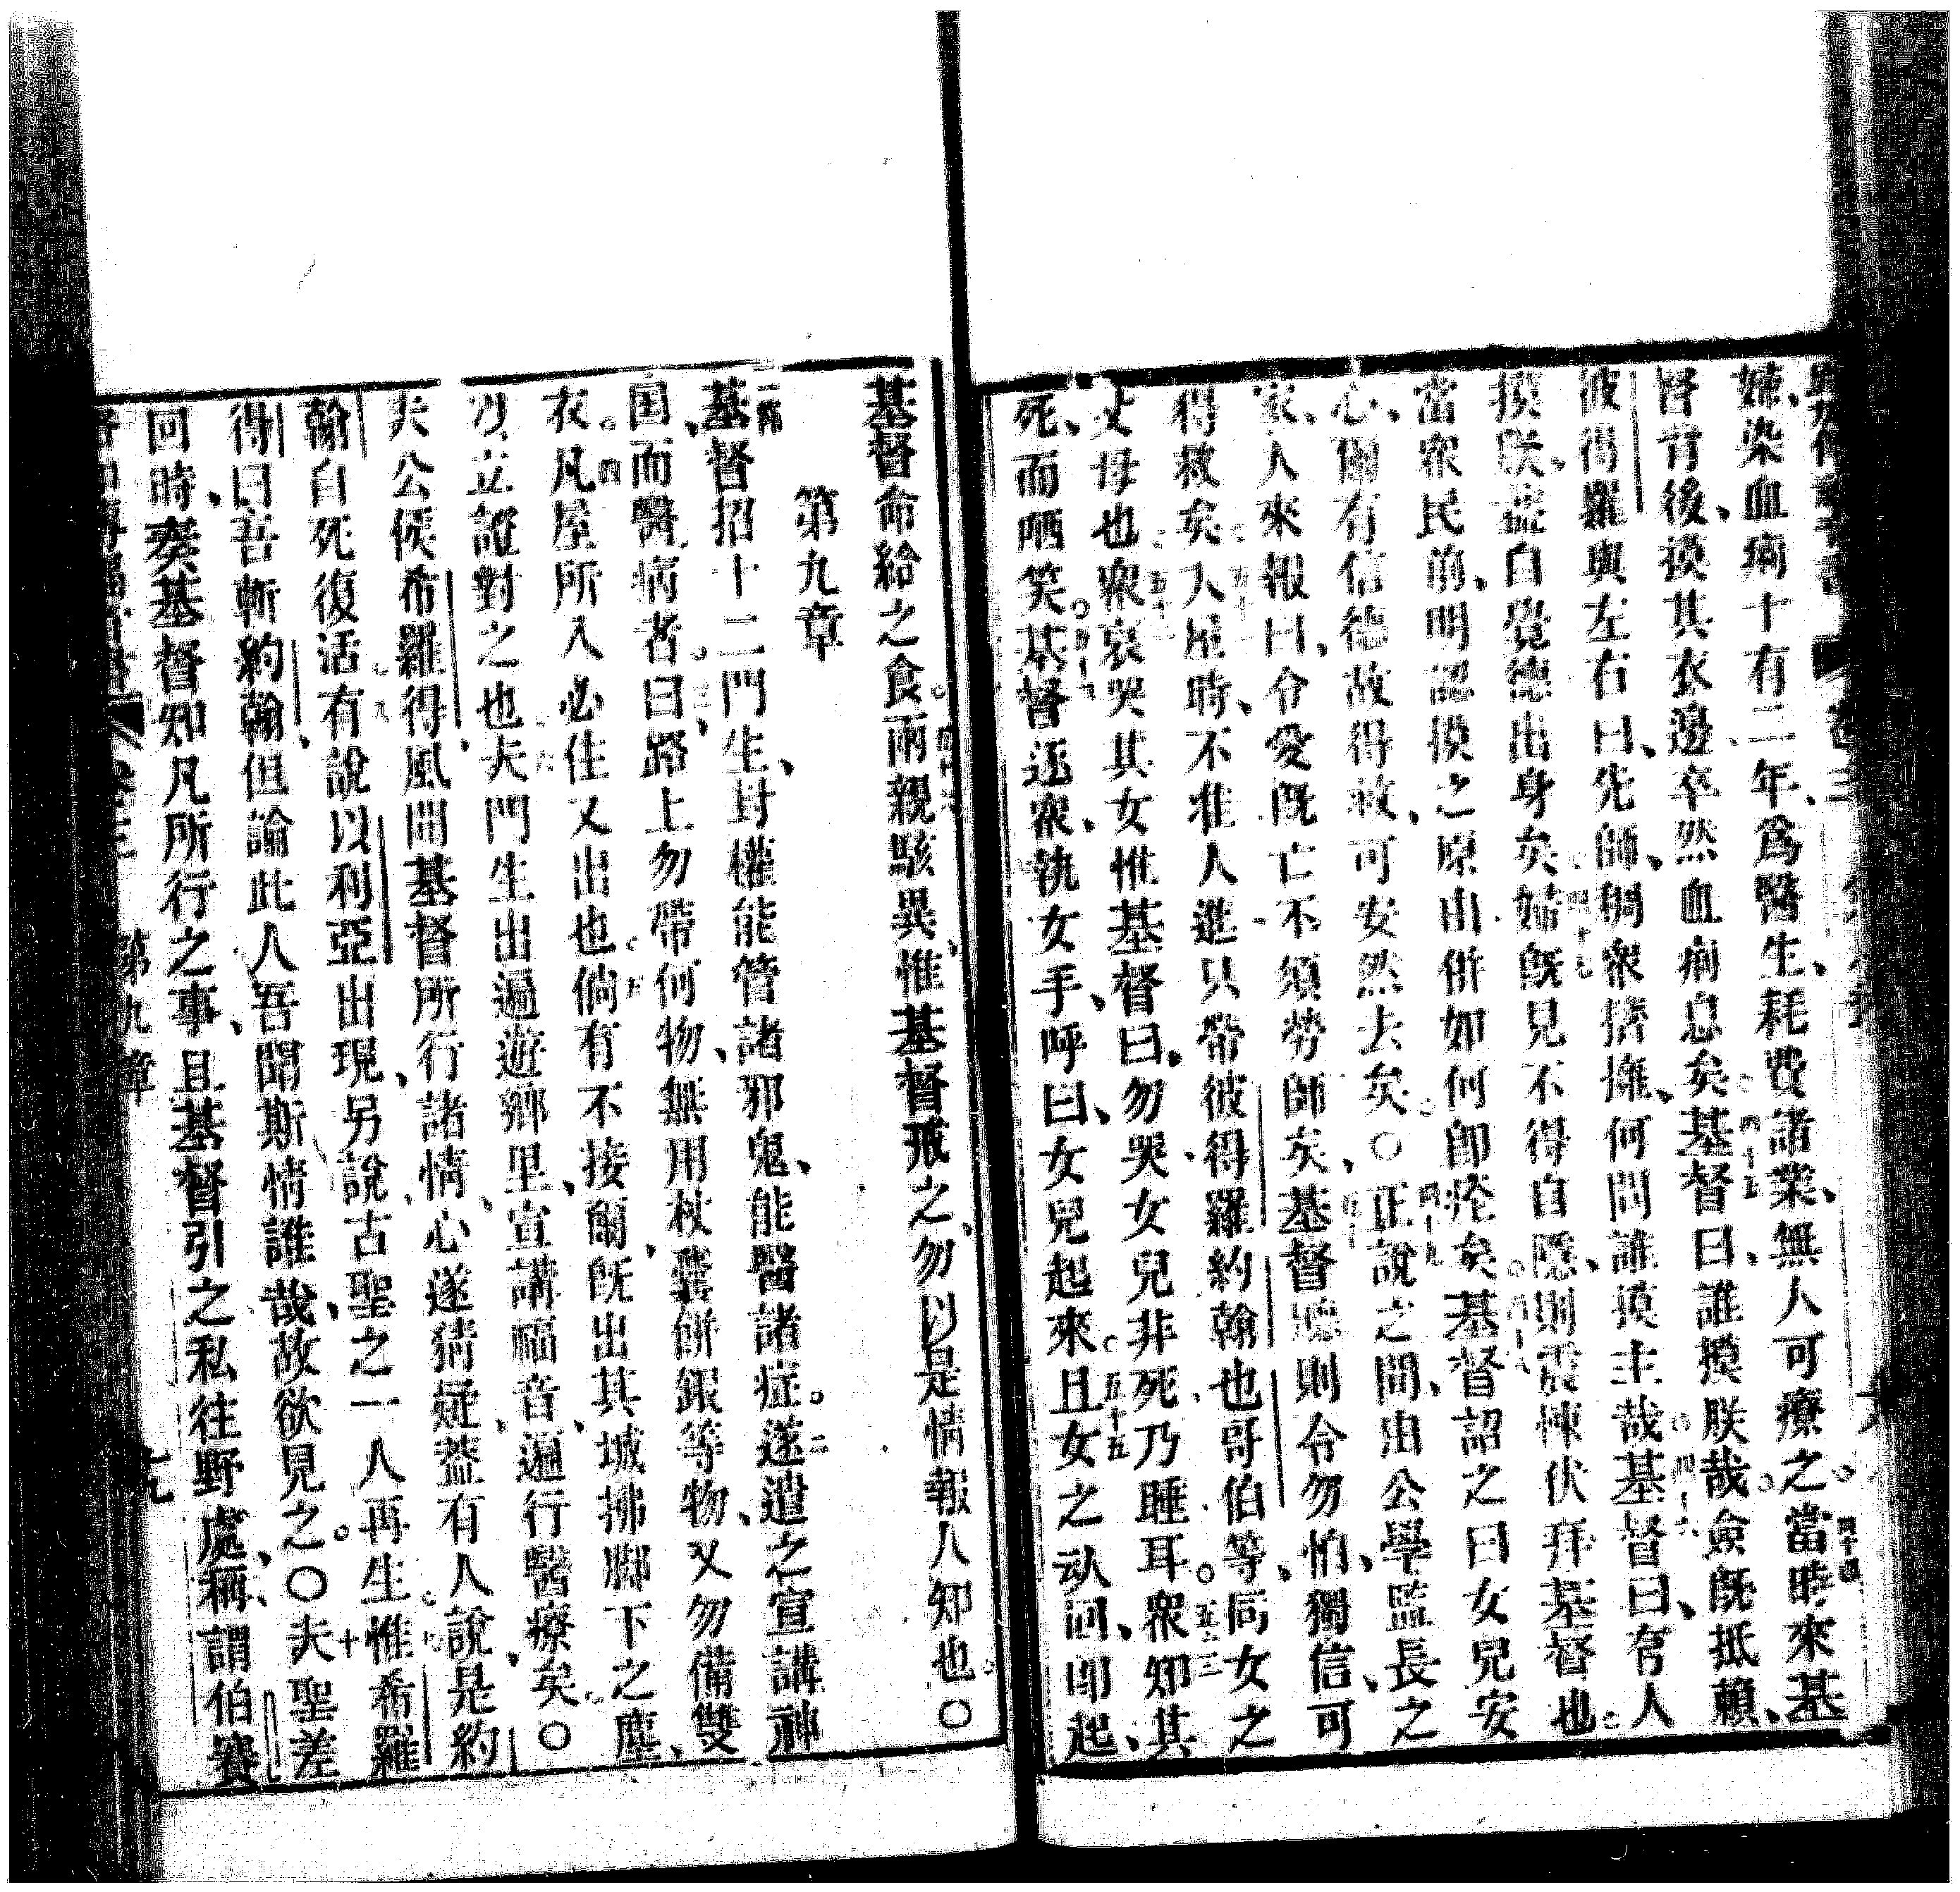 婦、染血痾十有二年、爲醫生、耗費諸業、無人可療之。當時來基
督背後、摸其衣邊、卒然血痾息矣。基督曰、誰摸朕哉。僉既抵賴、
彼得羅與左右曰、先師、稠眾擠擁、何問誰摸主哉。基督曰、有人
摸朕、蓋自覺德出身矣。婦既見不得自隱、則震悚伏拜基督也。
當眾民前、明認摸之原由、併如何卽痊矣。基督詔之曰、女兒安
心、爾有信德、故得救、可安然去矣。○正說之間、由公學監長之
家、人來報曰、令愛既亡、不須勞師矣、基督聽則令勿怕、獨信、可
得救矣。入屋時、不准人進、只帶彼得羅、約翰也、哥伯等、同女之
父母也。眾哀哭其女、惟基督曰、勿哭、女兒非死、乃睡耳。眾知其
死、而哂笑。基督逐眾、執女手、呼曰、女兒起來。且女之氣回、即起、
基督命給之食。兩親駭異、惟基督戒之、勿以是情報人知也。○
第九章
基督招十二門生、封權能管諸邪鬼、能醫諸症。遂遣之宣講神
国、而醫病者。曰、路上勿帶何物、無用杖囊餅銀等物、又勿備雙
衣。凡屋所入必住、又出也。倘有不接爾、既出其城、拂脚下之塵、
以立證對之也。夫門生出遍遊鄉里、宣講福音、遍行醫療矣。○
夫公侯希羅得、風聞基督所行諸情、心遂猜疑、蓋有人說、是約
翰自死復活。有說以利亞出現、另說古聖之一人再生。惟希羅
得曰、吾斬約翰、但論此人、吾聞斯情、誰哉、故欲見之。○夫聖差
回時、奏基督知凡所行之事、且基督引之私往野處、稱謂伯賽
第九章